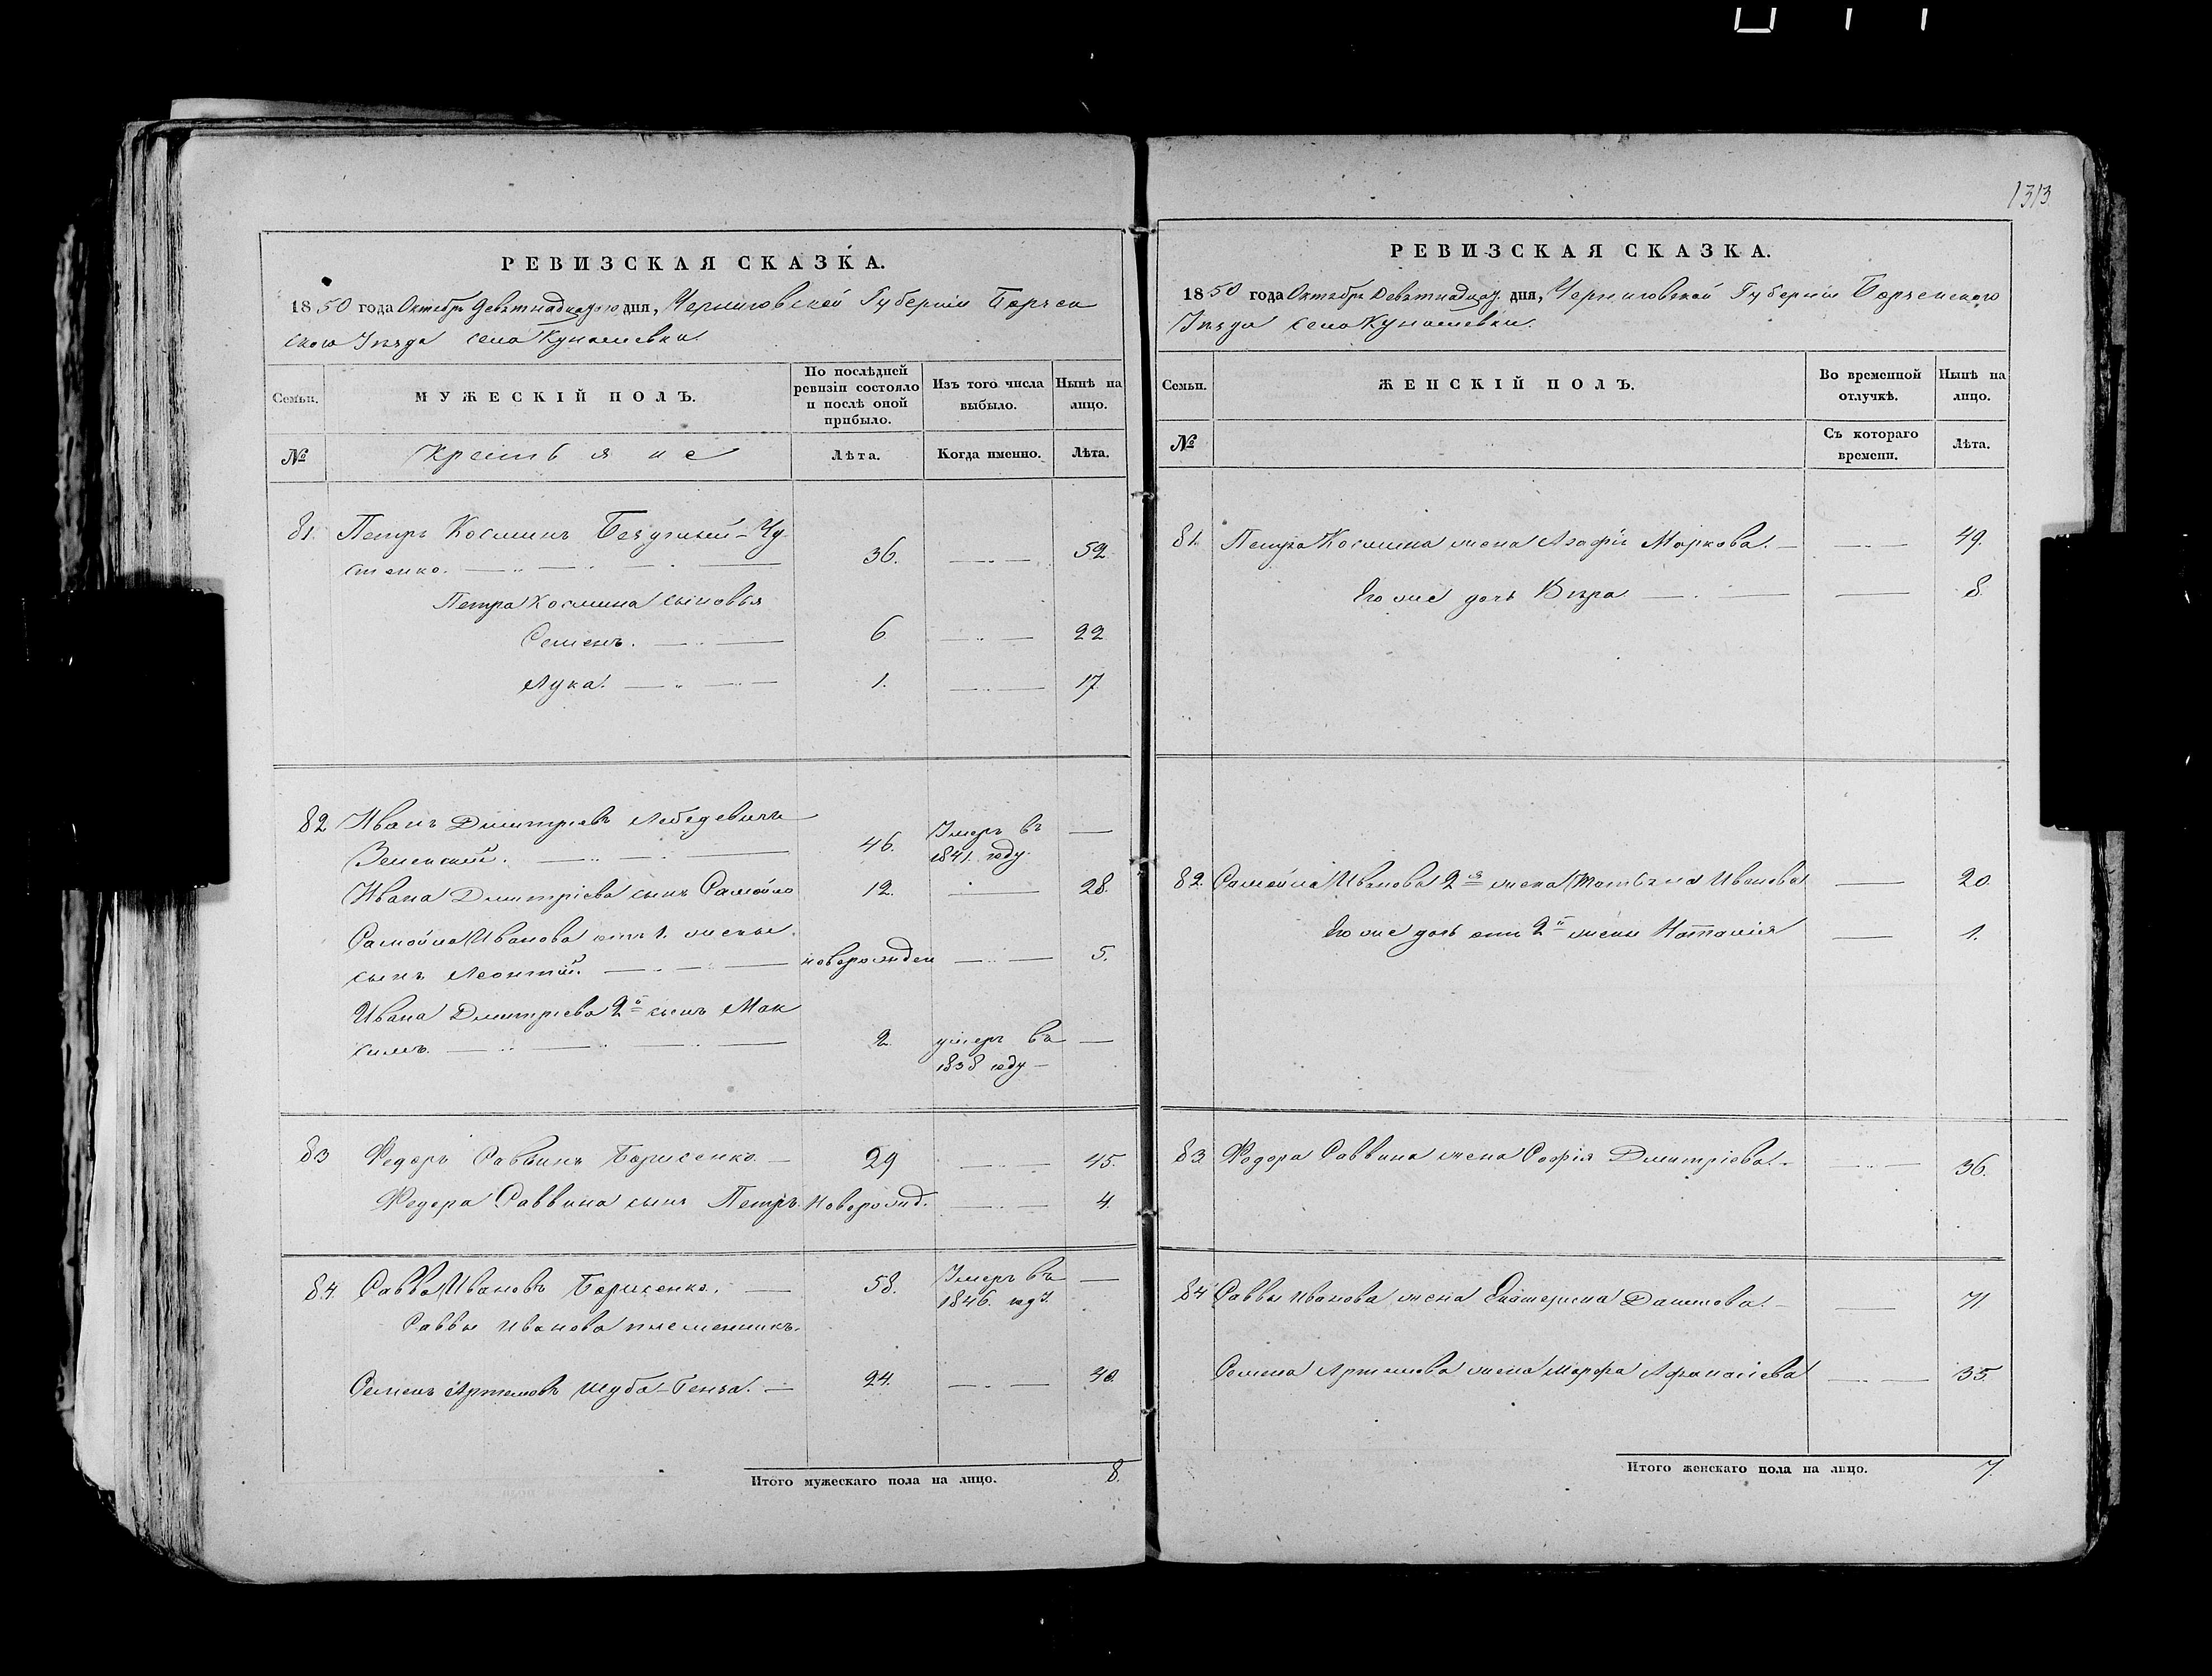 1313
РЕВИЗСКАЯ СКАЗКА.
1850 года Октября Девятнадцатого дня, Черниговской Губернiи Борзен
ского Уезда села Кунашевки.
Семьи. МУЖЕСКIЙ ПОЛЪ. По послѣдней ревизiи состояло и послѣ оной прибыло. Изъ того числа выбыло. Нынѣ на лицо.
№ Крестьяне Лѣта. Когда именно. Лѣта.
81. Петръ Косминъ
стенко. 36. 52.
Петра Космина сыновья
Семенъ. 6 22
Лука. 1. 17
82 Иванъ Дмитрiевъ Лебедевичъ
46. Умеръ въ 1841. году.
Ивана Дмитрiева сынъ Самойло 12. 28.
Самойла Иванова отъ 1. жены
сынъ Леонтiй. новорожден 5.
Ивана Дмитрiева 2й сынъ Мак
симъ. 2. умеръ въ 1838 году
83 Федоръ Саввинъ Борисенко 29 45.
Федора Саввина сынъ Петръ. Новорожд. 4.
84. Савва Ивановъ Борисенко. 58. Умеръ въ 1846. году.
Саввы Иванова племянникъ.
Семенъ Артемовъ Шуба 24. 40.
Итого мужескаго пола на лицо. 8.
РЕВИЗСКАЯ СКАЗКА.
1850 года Октября Девятнадцат. дня, Черниговской Губернiи Борзенского
Уезда села Кунашевки.
Семьи. ЖЕНСКIЙ ПОЛЪ. Во временной отлучкѣ. Нынѣ на лицо.
№ Съ котораго времени. Лѣта.
81. Петра Космина жена Агафiя Маркова. 49.
Его же дочь Вѣра 8
82. Самойла Иванова 2я жена Татьяна Иванова 20.
Его же дочь отъ 2й жены Наталiя 1.
83. Федора Саввина жена Софiя Дмитрiева. 36.
84 Саввы Иванова жена Екатерина Данилова. 71
Семена Артемова жена Марфа Афанасiева 35
Итого женскаго пола на лицо. 7.